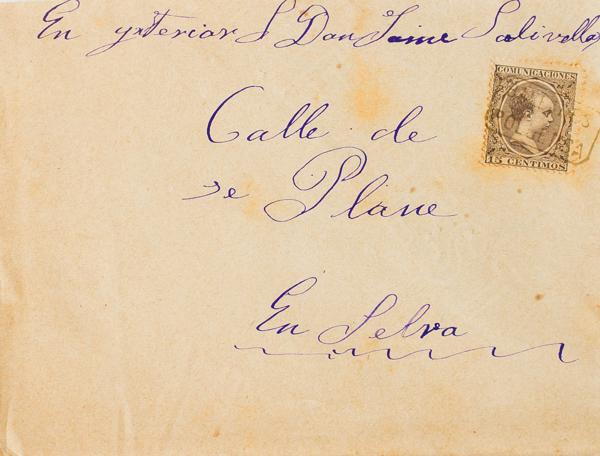 En yxterior S Don Jaime Salivellas
COMUNICACIONES
15 CENTIMOS
Calle de
se Plane
En Selva